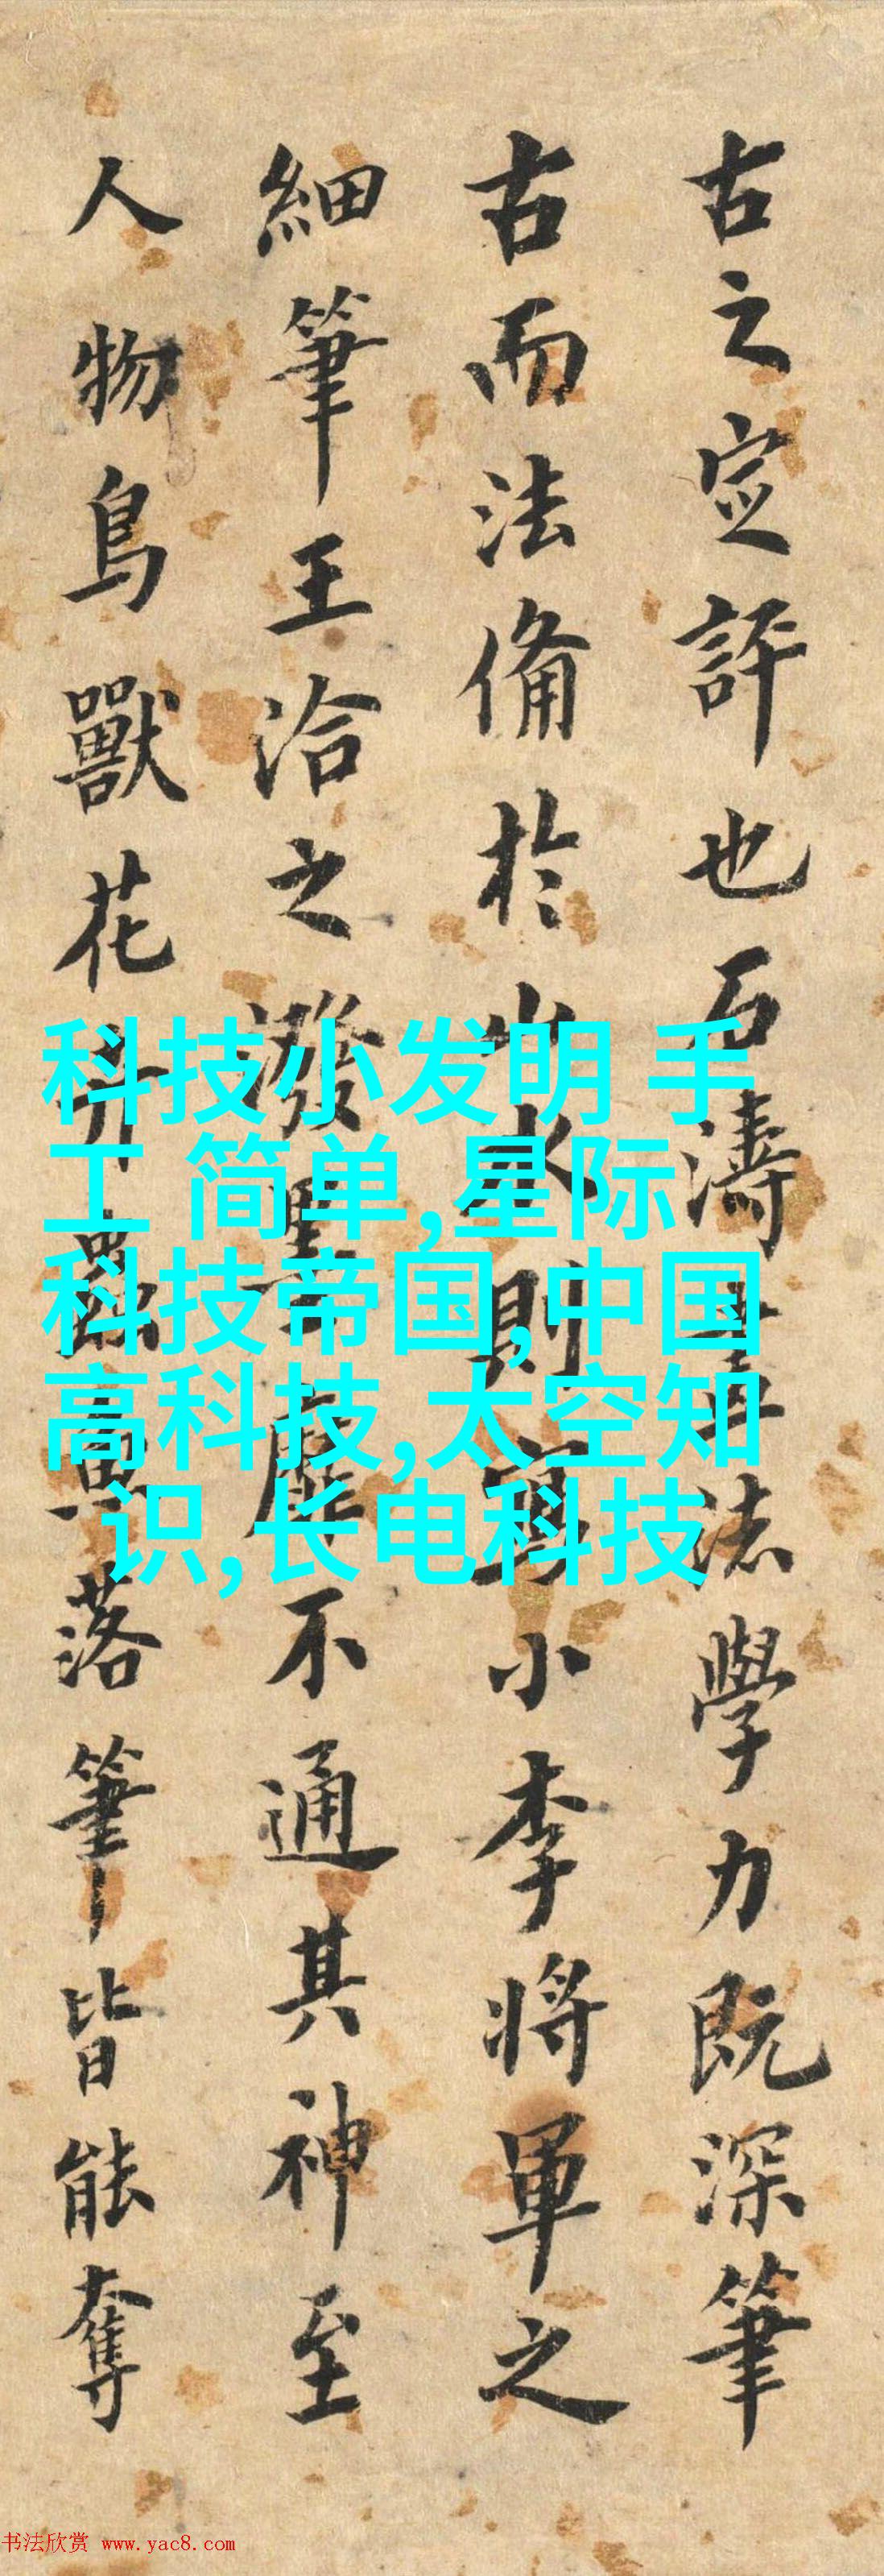 古之定評也石濤法學力既深筆
古而法備於山水則寫小李將軍之
細筆王洽之潑墨靡不通其神至
人物鳥獸花卉蟲魚落筆皆能奪
科技小发明 手
工 简单,星际
科技帝国,中国
高科技,太空知
识,长电科技
书法欣赏 www.yac8.com